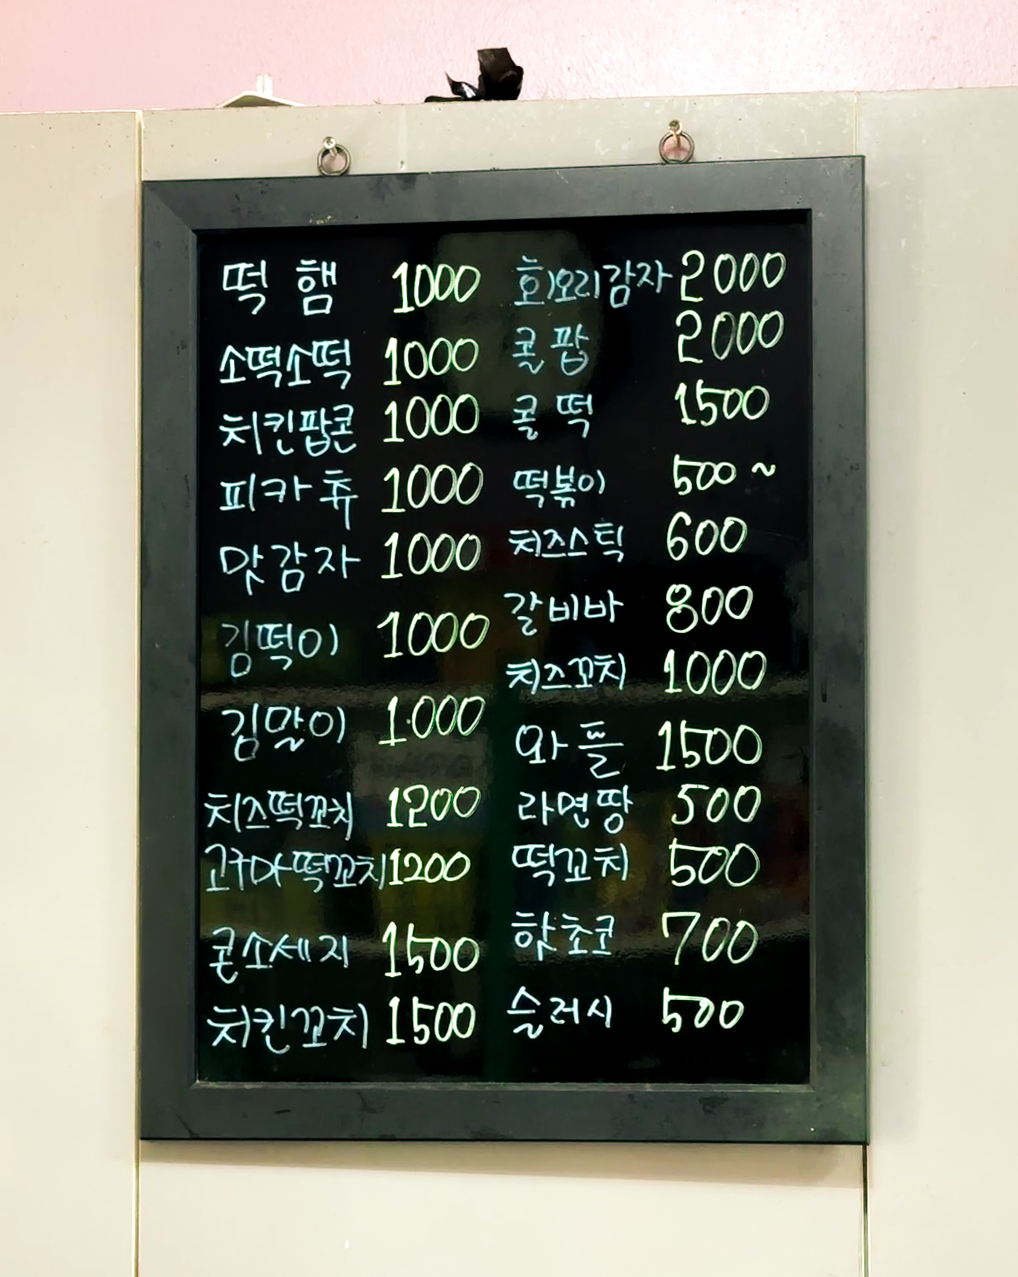 떡 햄 1000
소떡소떡 1000
치킨팝콘 1000
피카츄 1000
맛감자 1000
김떡이 1000
김말이 1.000
치즈떡꼬치 1200
고구마떡꼬치 1200
콘소세지 1500
치킨꼬치 1500
회오리감자 2000
콜팝 2000
콜떡 1500
떡볶이 500~
치즈스틱 600
갈비바 800
치즈꼬치 1000
와플 1500
라면땅 500
떡꼬치 500
핫초코 700
슬러시 500